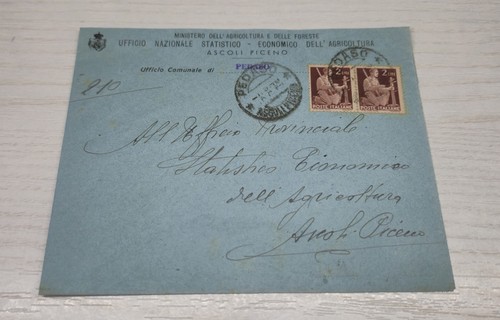 MINISTERO DELL'AGRICOLTURA E DELLE FORESTE
UFFICIO NAZIONALE STATISTICO - ECONOMICO DELL'AGRICOLTURA
ASCOLI PICENO
Ufficio Comunale di PEDASO
810
PEDASO
ASCOLI PICENO
PEDASO
2 LIRE
POSTE ITALIANE
2 LIRE
POSTE ITALIANE
All'Ufficio Provinciale
Statistico Economico
dell'Agricoltura
Ascoli Piceno